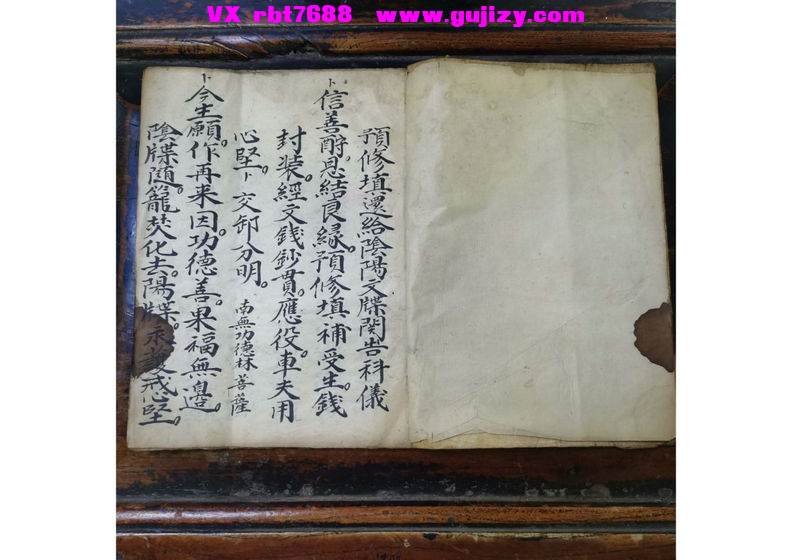 VX rbt7688 www.gujizy.com
預修填還給陰陽文牒関告科儀
卜信善酧恩結良緣。預修填補受生錢
封装。經文錢鈔貫。應役車夫用
心堅。卜交卸分明。南無功德林菩薩
卜今生願。作再来因。功德善果福無邊。
陰牒随籠焚化去。陽牒。永發戒心堅。